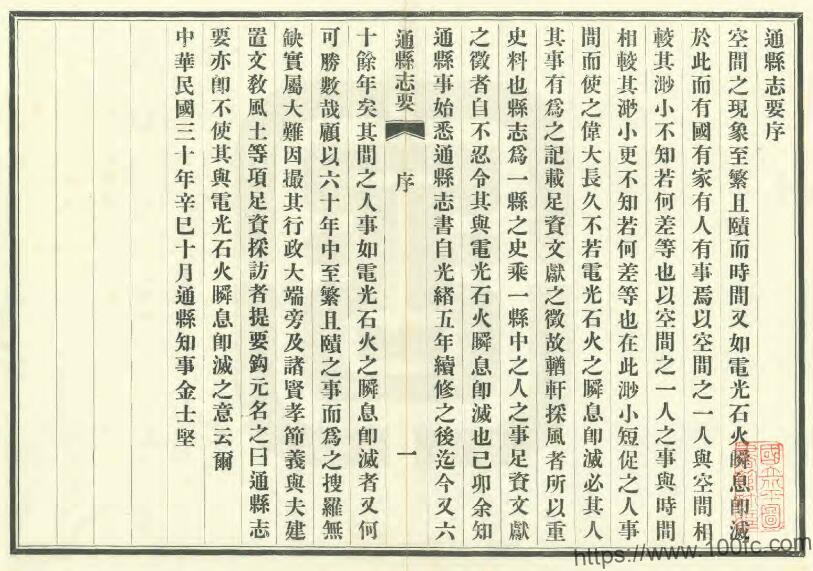 通縣志要序
空間之現象至繁且賾而時間又如電光石火瞬息卽滅
於此而有國有家有人有事焉以空間之一人與空間相
較其渺小不知若何差等也以空間之一人之事與時間
相較其渺小更不知若何差等也在此渺小短促之人事
間而使之偉大長久不若電光石火之瞬息卽滅必其人
其事有爲之記載足資文獻之徵故輶軒採風者所以重
史料也縣志爲一縣之史乘一縣中之人之事足資文獻
之徵者自不忍令其與電光石火瞬息卽滅也己卯余知
通縣事始悉通縣志書自光緒五年續修之後迄今又六
通縣志要
序
一
十餘年矣其間之人事如電光石火之瞬息卽滅者又何
可勝數哉顧以六十年中至繁且賾之事而爲之搜羅無
缺實屬大難因撮其行政大端旁及諸賢孝節義與夫建
置文敎風土等項足資採訪者提要鈎元名之曰通縣志
要亦卽不使其與電光石火瞬息卽滅之意云爾
中華民國三十年辛巳十月通縣知事金士堅
https://www.100fc.com